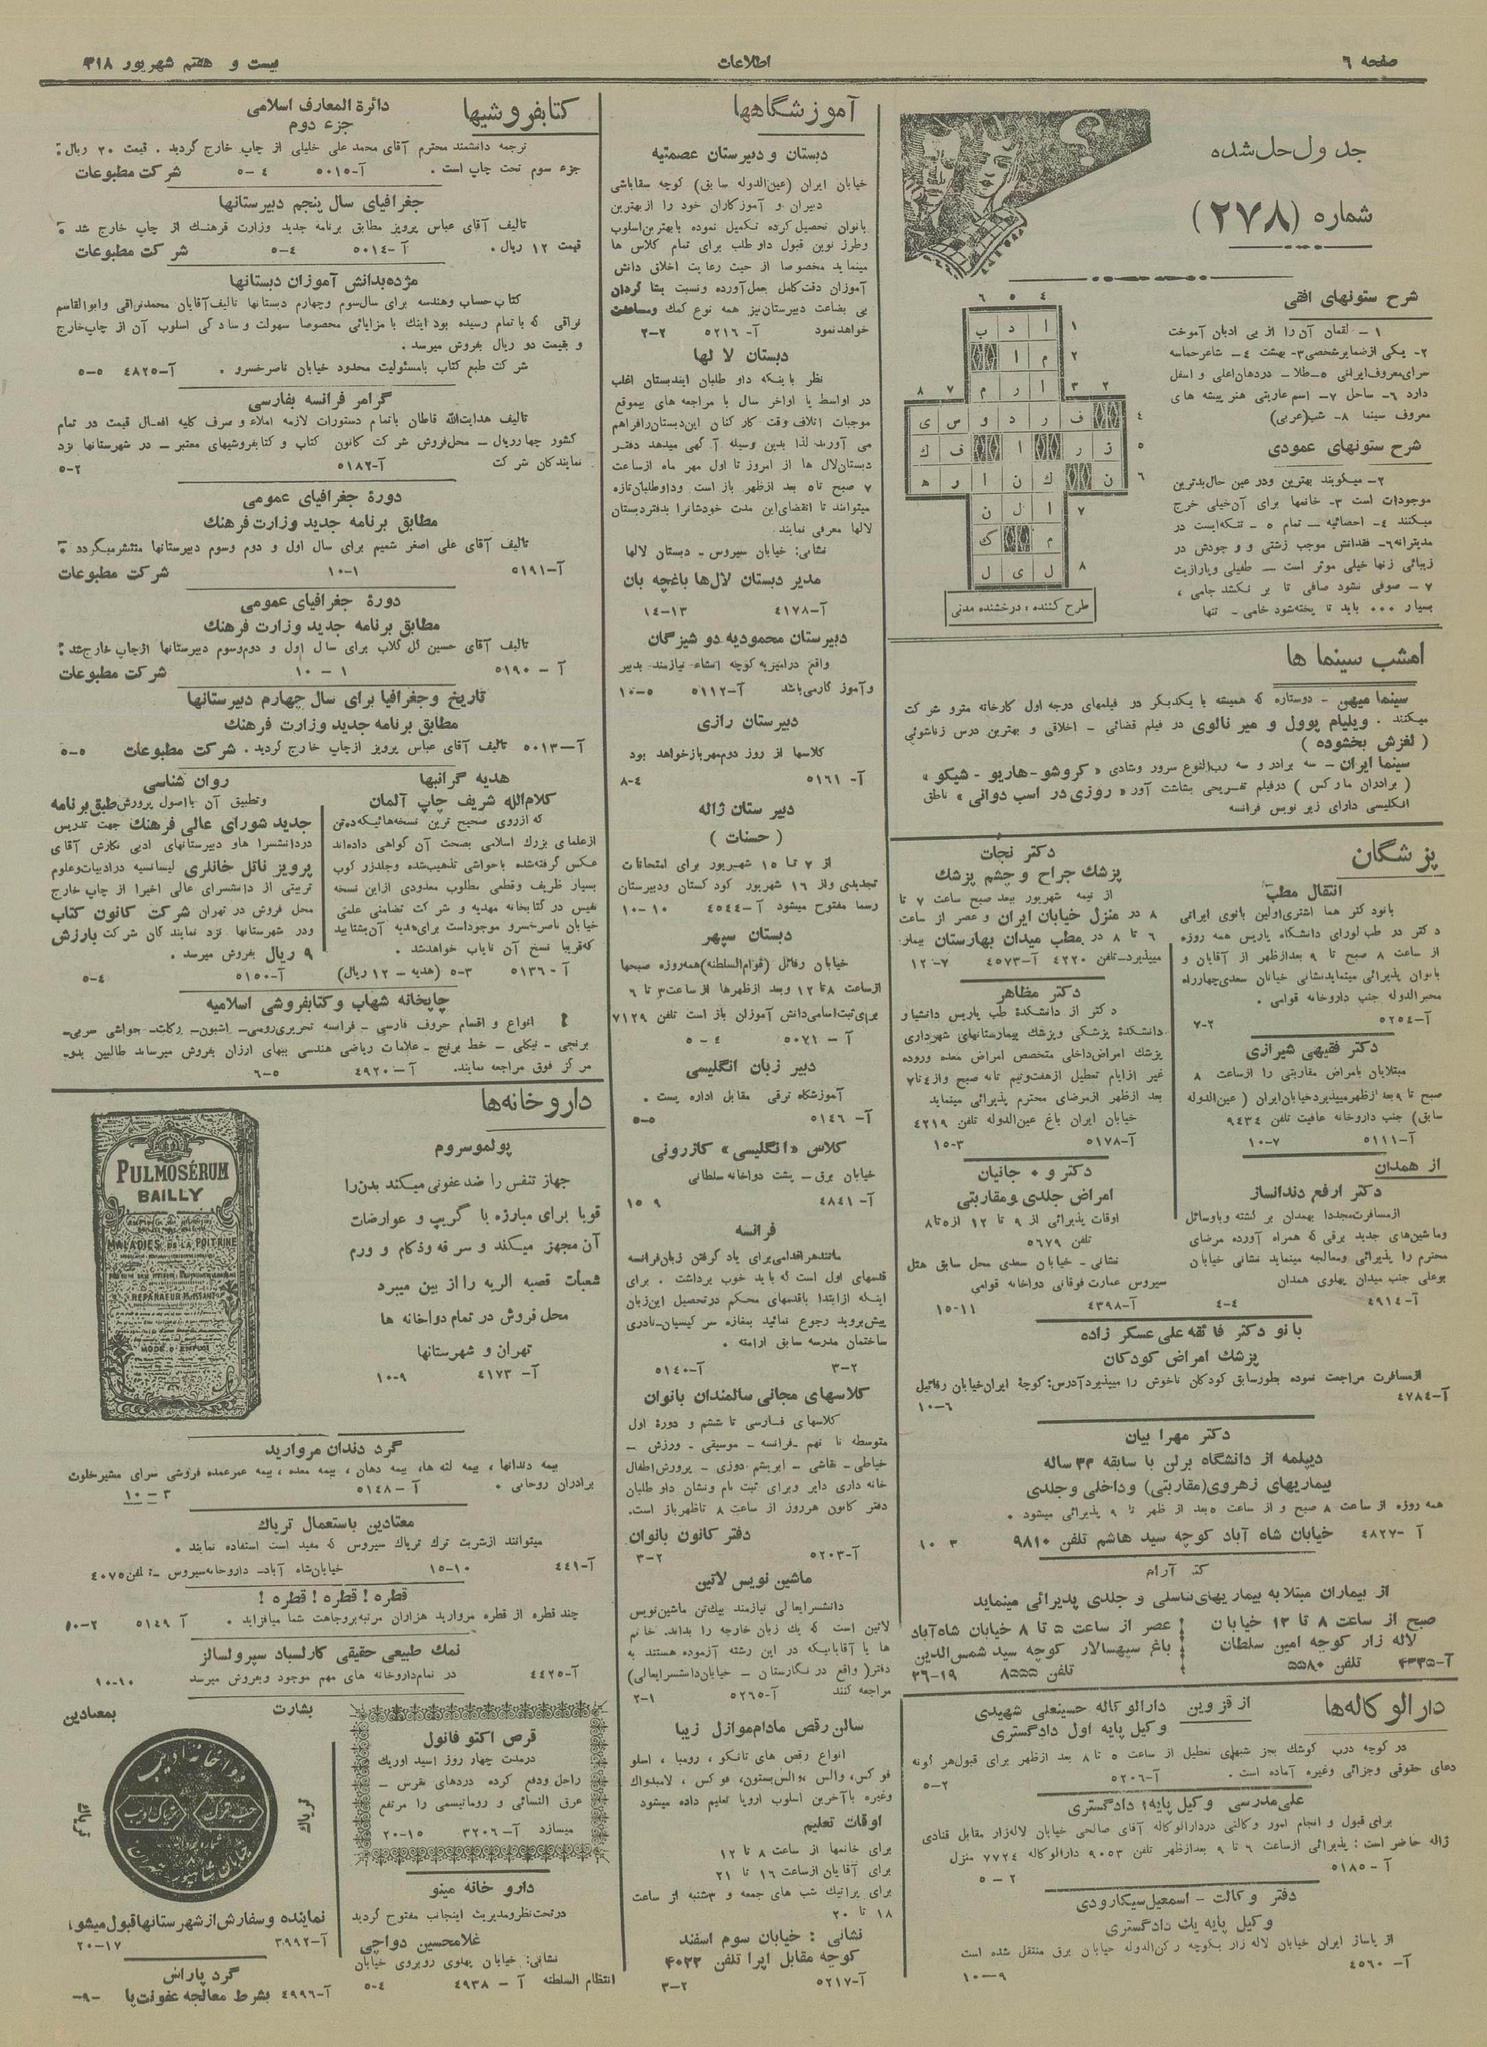 صفحه ۶
اطلاعات
بیست و هفتم شهریور ۳۱۸
جدول حل شده
شماره (۲۷۸)
شرح ستونهای افقی
۱ - لقمان آن را از بی ادبان آموخت
۲- یکی از ضمایر شخصی ۳- بهشت ۴- شاعر حماسه
سرای معروف ایرانی ۵- طلا - دردهان اعلی و اسفل
دارد ۶- ساحل ۷- اسم عاریتی هنر پیشه های
معروف سینما ۸- شب (عربی)
شرح ستونهای عمودی
۲- میکویند بهترین ودر عین حال بدترین
موجودات است ۳- خانمها برای آن خیلی خرج
میکنند ۴- احصائیه - تمام ۵ - تنکه ایست در
مدیترانه ۶- فقدانش موجب زشتی و و جودش در
زیبائی زنها خیلی موثر است - طفیلی وپارازیت
۷ - صوفی نشود صافی تا بر نکشد جامی ،
بسیار ۰۰۰ باید تا پخته شود خامی - تنها
طرح کننده : درخشنده مدنی
امشب سینما ها
سینما میهن - دوستاره که همیشه با یکدیگر در فیلمهای درجه اول کارخانه مترو شرکت
میکنند . ویلیام پوول و میر نالوی در فیلم قضائی - اخلاقی و بهترین درس زناشوئی
( لغزش بخشوده )
سینما ایران - سه برادر و سه رب النوع سرور وشادی « کروشو - هارپو - شیکو »
( برادران مارکس ) درفیلم تفریحی بشاشت آور « روزی در اسب دوانی » ناطق
انگلیسی دارای زیر نویس فرانسه
پزشگان
انتقال مطب
بانو دکتر هما اشتری اولین بانوی ایرانی
دکتر در طب لورای دانشگاه پاریس همه روزه
از ساعت ۸ صبح تا ۹ بعدازظهر از آقایان و
بانوان پذیرائی مینماید نشانی خیابان سعدی چهارراه
مخبرالدوله جنب داروخانه قوامی .
آ-۵۲۵۴ ۲-۷
دکتر فقیهی شیرازی
مبتلایان بامراض مقاربتی را ازساعت ۸
صبح تا ۹ بعد ازظهر میپذیرد خیابان ایران ( عین الدوله
سابق) جنب داروخانه عافیت تلفن ۹۴۳۴
آ-۵۱۱۱ ۷-۱۰
از همدان
دکتر ارفع دندانساز
ازمسافرت مجددا بهمدان بر گشته وباوسائل
وماشین‌های جدید برقی که همراه آورده مرضای
محترم را پذیرائی ومعالجه مینماید نشانی خیابان
بوعلی جنب میدان پهلوی همدان
آ-۴۹۱۴ ۴-۴
دکتر نجات
پزشك جراح و چشم پزشك
از نیمه شهریور ببعد صبح ساعت ۷ تا
۸ در منزل خیابان ایران و عصر از ساعت
۶ تا ۸ در مطب میدان بهارستان بیمار
میپذیرد-تلفن ۴۲۲۰ آ-۴۵۷۳ ۷-۱۲
دکتر مظاهر
دکتر از دانشکدۀ طب پاریس دانشیار
دانشکدۀ پزشکی وپزشك بیمارستانهای شهرداری
پزشك امراض داخلی متخصص امراض معده وروده
غیر ازایام تعطیل ازهفت ونیم تا نه صبح و از ۴ تا ۷
بعد ازظهر ازمرضای محترم پذیرائی مینماید
خیابان ایران باغ عین الدوله تلفن ۴۲۱۹
آ-۵۱۷۸ ۳-۱۵
دکتر و ۰ جانیان
امراض جلدی و مقاربتی
اوقات پذیرائی از ۹ تا ۱۲ از ۵ تا ۸
تلفن ۵۶۷۹
نشانی - خیابان سعدی محل سابق هتل
سیروس عمارت فوقانی دواخانه قوامی
آ-۴۳۹۸ ۱۱-۱۵
بانو دکتر فائقه علی عسکر زاده
پزشك امراض کودکان
ازمسافرت مراجعت نموده بطورسابق کودکان ناخوش را میپذیرد آدرس: کوچۀ ایران خیابان رفائیل
آ-۴۷۸۴ ۶-۱۰
دکتر مهرا بیان
دیپلمه از دانشگاه برلن با سابقه ۳۳ ساله
بیماریهای زهروی (مقاربتی) وداخلی وجلدی
همه روزه از ساعت ۸ صبح و از ساعت ۵ بعد از ظهر تا ۹ پذیرائی میشود .
آ -۴۸۲۷ خیابان شاه آباد کوچه سید هاشم تلفن ۹۸۱۰ ۳ ۱۰
آرام
از بیماران مبتلا به بیماریهای تناسلی و جلدی پذیرائی مینماید
صبح از ساعت ۸ تا ۱۳ خیابان
لاله زار کوچه امین سلطان
آ-۴۳۳۵ تلفن ۵۵۸۰
عصر از ساعت ۵ تا ۸ خیابان شاه آباد
باغ سپهسالار کوچه سید شمس الدین
تلفن ۸۵۵۵ ۱۹-۳۶
دارالوکاله‌ها
از قزوین
دارالوکاله حسینعلی شهیدی
وکیل پایه اول دادگستری
در کوچه درب کوشك بجز شبهای تعطیل از ساعت ۵ تا ۸ بعد ازظهر برای قبول هر گونه
دعای حقوقی وجزائی وغیره آماده است . آ-۵۲۰۶ ۲-۵
علی مدرسی وکیل پایه ۱ دادگستری
برای قبول و انجام امور وکالتی دردارالوکاله آقای صالحی خیابان لاله‌زار مقابل قنادی
ژاله حاضر است : پذیرائی ازساعت ۶ تا ۹ بعدازظهر تلفن ۹۰۵۳ دارالوکاله ۷۷۲۴ منزل
آ -۵۱۸۵ ۲-۵
دفتر وکالت - اسمعیل سیگارودی
وکیل پایه یك دادگستری
از پاساژ ایران خیابان لاله زار بکوچه رکن الدوله خیابان برق منتقل شده است
آ- ۴۵۶۰ ۹-۱۰
آموزشگاهها
دبستان و دبیرستان عصمتیه
خیابان ایران (عین الدوله سابق) کوچه سقاباشی
دبیران و آموزکاران خود را ازبهترین
بانوان تحصیل کرده تکمیل نموده بابهترین اسلوب
وطرز نوین قبول داوطلب برای تمام کلاس ها
مینماید مخصوصا از حیث رعایت اخلاق دانش
آموزان دقت کامل بعمل آورده ونسبت بشاگردان
بی بضاعت دبیرستان نیز همه نوع کمك ومساعدت
خواهدنمود آ- ۵۲۱۶ ۲-۲
دبستان لا لها
نظر باینکه داو طلبان این دبستان اغلب
در اواسط یا اواخر سال با مراجعه های بیموقع
موجبات اتلاف وقت کار کنان این دبستان رافراهم
می آورند لذا بدین وسیله آگهی میدهد دفتر
دبستان لال ها از امروز تا اول مهر ماه ازساعت
۷ صبح تا ۵ بعد ازظهر باز است وداوطلبان تازه
میتوانند تا انقضای این مدت خودشانرا بدفتر دبستان
لالها معرفی نمایند
نشانی: خیابان سیروس - دبستان لالها
مدیر دبستان لال‌ها باغچه بان
آ-۴۱۷۸ ۱۳-۱۴
دبیرستان محمودیه دو شیزگان
واقع درامیریه کوچه انشاء نیازمند بدبیر
وآموز کارمی‌باشد آ-۵۱۱۲ ۵-۱۰
دبیرستان رازی
کلاسها از روز دوم مهر باز خواهد بود
آ- ۵۱۶۱ ۴-۸
دبیر ستان ژاله
( حسنات )
از ۷ تا ۱۵ شهریور برای امتحانات
تجدیدی واز ۱۶ شهریور کودکستان ودبیرستان
رسما مفتوح میشود آ-۴۵۴۴ ۱۰-۱۰
دبستان سپهر
خیابان رفائل (قوام السلطنه) همه روزه صبحها
ازساعت ۸ تا ۱۲ وبعد ازظهرها ازساعت ۳ تا ۶
برای ثبت اسامی دانش آموزان باز است تلفن ۷۱۲۹
آ - ۵۰۷۱ ۴-۵
دبیر زبان انگلیسی
آموزشگاه ترقی مقابل اداره پست .
آ- ۵۱۴۶ ۵-۵
کلاس «انگلیسی» کازرونی
خیابان برق - پشت دواخانه سلطانی
آ- ۴۸۴۱ ۹ ۱۵
فرانسه
مانند هر اقدامی برای یاد گرفتن زبان فرانسه
قدمهای اول است که باید خوب برداشت . برای
اینکه ازابتدا باقدمهای محکم درتحصیل این زبان
پیش بروید رجوع نمائید بمغازه سرکیسیان-نادری
ساختمان مدرسه سابق ارامنه .
آ-۵۱۴۰ ۲-۳
کلاسهای مجانی سالمندان بانوان
کلاسهای فارسی تا ششم و دورۀ اول
متوسطه تا نهم -فرانسه - موسیقی - ورزش -
خیاطی - نقاشی - ابریشم دوزی - پرورش اطفال
خانه داری دایر وبرای ثبت نام ونشان داو طلبان
دفتر کانون هرروز از ساعت ۸ تاظهر باز است.
دفتر کانون بانوان
آ-۵۲۰۳ ۲-۳
ماشین نویس لاتین
دانشسرایعالی نیازمند بیك‌تن ماشین نویس
لاتین است که یك زبان خارجه را بداند. خانم
ها یا آقایانیکه در این رشته آزموده هستند به
دفتر (واقع در نگارستان - خیابان دانشسرایعالی)
مراجعه کنند آ-۵۲۶۵ ۱-۲
سالن رقص مادام موازل زیبا
انواع رقص های تانکو ، رومبا ، اسلو
فوکس، والس، والس بستون، فوکس ، لامبدواك
وغیره باآخرین اسلوب اروپا تعلیم داده میشود
اوقات تعلیم
برای خانمها از ساعت ۸ تا ۱۲
برای آقایان ازساعت ۱۶ تا ۲۱
برای پراتیك شب های جمعه و ۳شنبه از ساعت
۱۸ تا ۲۰
نشانی : خیابان سوم اسفند
کوچه مقابل اپرا تلفن ۴۰۳۳
آ-۵۲۱۷ ۲-۳
کتابفروشیها
دائرة المعارف اسلامی
جزء دوم
ترجمه دانشمند محترم آقای محمد علی خلیلی از چاپ خارج گردید . قیمت ۲۰ ریال :
جزء سوم تحت چاپ است . آ-۵۰۱۵ ۴-۵ شرکت مطبوعات
جغرافیای سال پنجم دبیرستانها
تالیف آقای عباس پرویز مطابق برنامه جدید وزارت فرهنك از چاپ خارج شد .
قیمت ۱۲ ریال . آ -۵۰۱۴ ۴-۵ شرکت مطبوعات
مژده بدانش آموزان دبستانها
کتاب حساب وهندسه برای سال سوم وچهارم دبستانها تالیف آقایان محمدنراقی وابوالقاسم
نراقی که باتمام رسیده بود اینك با مزایائی مخصوصا سهولت و سادکی اسلوب آن از چاپ خارج
و بقیمت دو ریال بفروش میرسد .
شرکت طبع کتاب بامسئولیت محدود خیابان ناصر خسرو . آ-۴۸۲۵ ۵-۵
گرامر فرانسه بفارسی
تالیف هدایت‌الله قاطان باتمام دستورات لازمه املاء و صرف کلیه افعال قیمت در تمام
کشور چهارریال - محل فروش شرکت کانون کتاب و کتابفروشیهای معتبر - در شهرستانها نزد
نمایندکان شرکت آ-۵۱۸۲ ۲-۵
دورۀ جغرافیای عمومی
مطابق برنامه جدید وزارت فرهنك
تالیف آقای علی اصغر شمیم برای سال اول و دوم وسوم دبیرستانها منتشر میگردد .
آ-۵۱۹۱ ۱-۱۰ شرکت مطبوعات
دورۀ جغرافیای عمومی
مطابق برنامه جدید وزارت فرهنك
تالیف آقای حسین گل گلاب برای سال اول و دوم وسوم دبیرستانها ازچاپ خارج شد :
آ - ۵۱۹۰ ۱ - ۱۰ شرکت مطبوعات
تاریخ وجغرافیا برای سال چهارم دبیرستانها
مطابق برنامه جدید وزارت فرهنك
آ-۵۰۱۳ تالیف آقای عباس پرویز ازچاپ خارج گردید. شرکت مطبوعات ۵-۵
هدیه گرانبها
کلام‌الله شریف چاپ آلمان
که ازروی صحیح ترین نسخه‌هائیکه ده تن
ازعلمای بزرك اسلامی بصحت آن گواهی داده‌اند
عکس گرفته شده باحواشی تذهیب شده وجلدزر کوب
بسیار ظریف وقطعی مطلوب معدودی ازاین نسخه
نفیس در کتابخانه مهدیه و شرکت تضامنی علمی
خیابان ناصر خسرو موجود است برای هدیه آن بشتابید
که قریبا نسخ آن نایاب خواهد شد .
آ - ۵۱۳۶ ۳-۵ (هدیه - ۱۲ ریال)
روان شناسی
وتطبیق آن بااصول پرورش طبق برنامه
جدید شورای عالی فرهنك جهت تدریس
دردانشسرا هاو دبیرستانهای ادبی نگارش آقای
پرویز ناتل خانلری لیسانسیه درادبیات وعلوم
تربیتی از دانشسرای عالی اخیرا از چاپ خارج
محل فروش در تهران شرکت کانون کتاب
ودر شهرستانها نزد نمایند گان شرکت بارزش
۹ ریال بفروش میرسد .
آ-۵۱۵۰ ۴-۵
چاپخانه شهاب و کتابفروشی اسلامیه
انواع و اقسام حروف فارسی - فرانسه تحریری روسی - اشپون- رکات- حواشی سربی-
برنجی - نیکلی - خط برنج - علامات ریاضی هندسی ببهای ارزان بفروش میرساند طالبین بدو-
مرکز فوق مراجعه نمایند. آ-۴۹۲۰ ۵-۶
داروخانه‌ها
پولموسروم
جهاز تنفس را ضد عفونی میکند بدن را
قویا برای مبارزه با گریپ و عوارضات
آن مجهز میکند و سرفه وذکام و ورم
شعبات قصبه الریه را از بین میبرد
محل فروش در تمام دواخانه ها
تهران و شهرستانها
آ- ۴۱۷۳ ۹-۱۰
PULMOSÉRUM
BAILLY
MALADIES DE LA POITRINE
RÉPARATEUR PUISSANT
MODE D'EMPLOI
گرد دندان مروارید
بیمه دندانها ، بیمه لثه ها، بیمه دهان ، بیمه معده ، بیمه عمر عمده فروشی سرای مشیر خلوت
برادران روحانی . آ - ۵۱۴۸ ۳-۱۰
معتادین باستعمال تریاك
میتوانند ازشربت ترك تریاك سیروس که مفید است استفاده نمایند .
آ-۴۴۱ ۱۰-۱۵ خیابان شاه آباد- داروخانه سیروس - تلفن ۴۰۷۵
قطره ! قطره ! قطره !
چند قطره از قطره مروارید هزاران مرتبه بروجاهت شما میافزاید . آ ۵۱۴۹ ۲-۵۰
نمك طبیعی حقیقی کارلسباد سپرولسالز
آ-۴۴۲۵ در تمام داروخانه های مهم موجود وبفروش میرسد ۱۰-۱۰
قرص اکتو فانول
درمدت چهار روز اسید اوریك
راحل ودفع کرده دردهای نقرس -
عرق النسائی و روماتیسمی را مرتفع
میسازد آ-۳۲۰۶ ۱۵-۲۰
دارو خانه مینو
درتحت نظر ومدیریت اینجانب مفتوح گردید
غلامحسین دواچی
نشانی: خیابان پهلوی روبروی خیابان
انتظام السلطنه آ - ۴۹۳۸ ۴-۵
بشارت
بمعتادین
تریاك
تریاك
دواخانه ادیب
حب ترك
تریاك ادیب
خیابان شاهپور تهران
نماینده وسفارش از شهرستانها قبول میشود
آ-۳۹۹۲ ۱۷-۲۰
گرد پاراش
آ-۴۹۹۶ بشرط معالجه عفونت پا ۹-